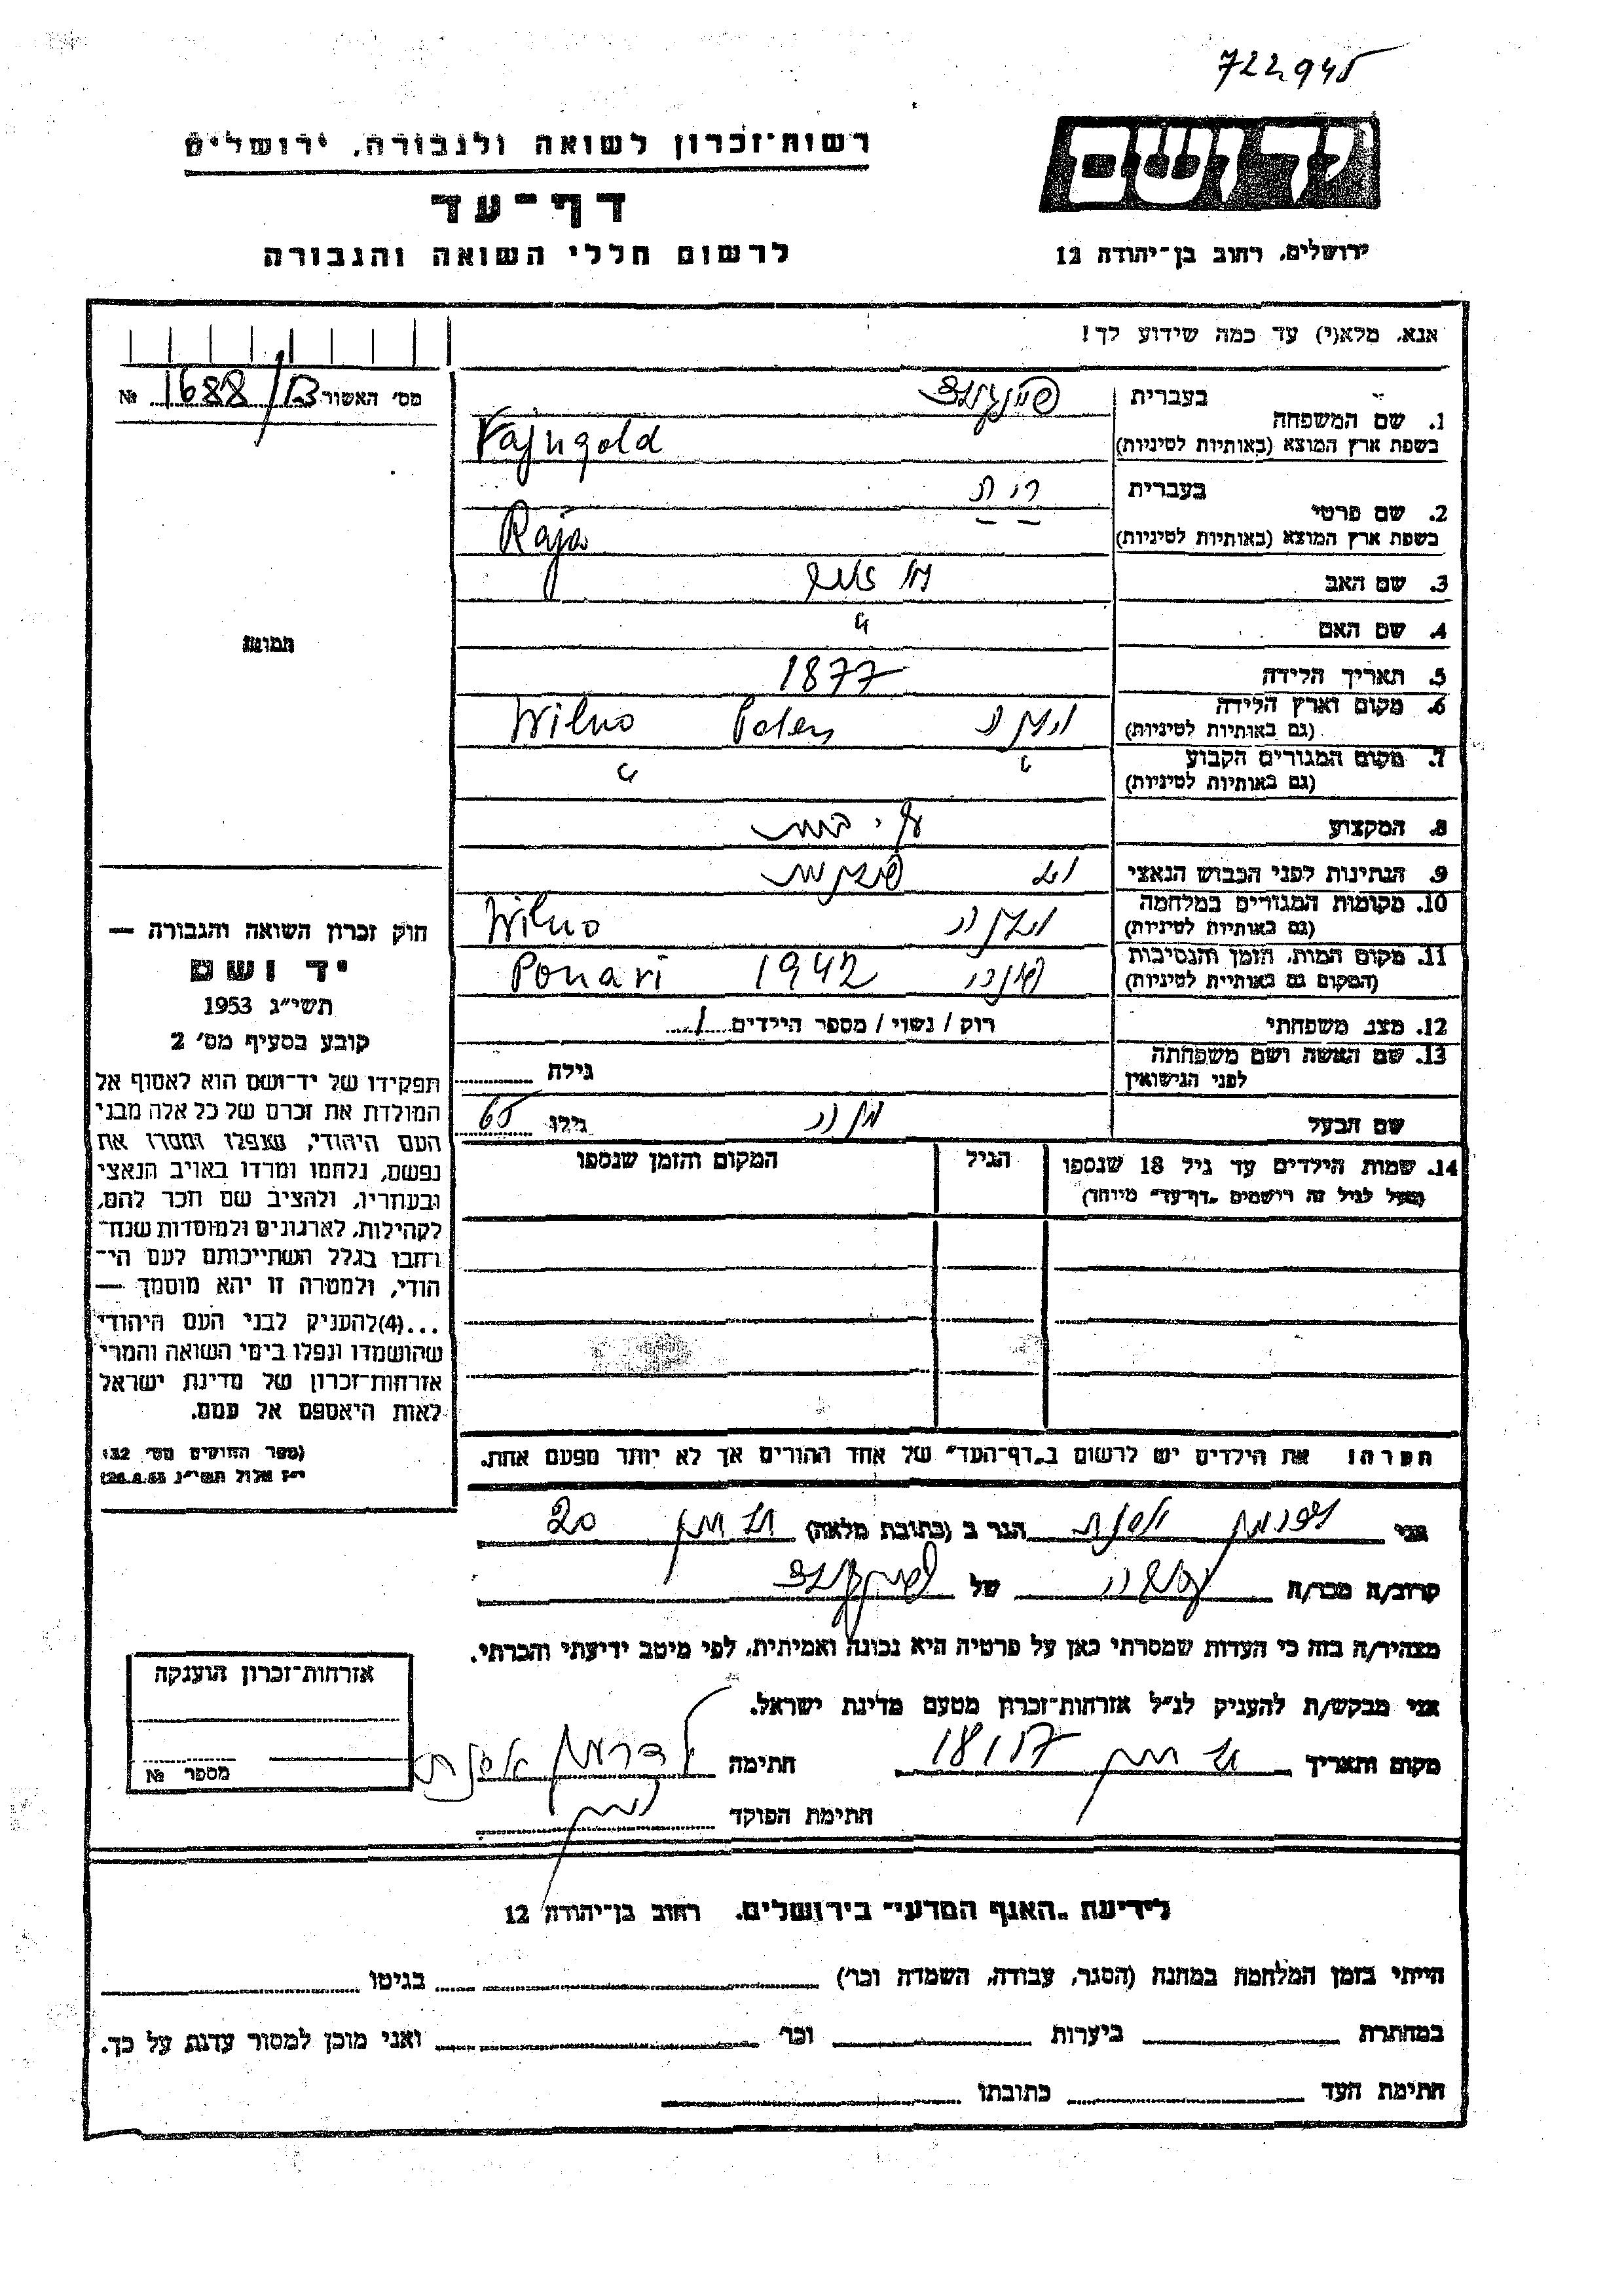 722945
יד ושם
רשות־זכרון לשואה ולגבורה, ירושלים
דף־עד
לרשום חללי השואה והגבורה
ירושלים, רחוב בן־יהודה 12
אנא, מלא(י) עד כמה שידוע לך!
מס׳ האשור 1688/13 №
1. שם המשפחה
בעברית
בשפת ארץ המוצא (באותיות לטיניות) Vajngold
2. שם פרטי
בעברית
בשפת ארץ המוצא (באותיות לטיניות) Raja
3. שם האב
4. שם האם
תמונה
5. תאריך הלידה 1877
6. מקום וארץ הלידה
(גם באותיות לטיניות) וילנה Polen Wilno
7. מקום המגורים הקבוע
(גם באותיות לטיניות)
8. המקצוע
9. הנתינות לפני הכבוש הנאצי
10. מקומות המגורים במלחמה
(גם באותיות לטיניות) וילנה Wilno
11. מקום המות, הזמן והנסיבות
(המקום גם באותיות לטיניות) 1942 Ponari
12. מצב משפחתי רוק / נשוי / מספר הילדים 1
13. שם האשה ושם משפחתה
לפני הנישואין גילה
שם הבעל גילו 65
14. שמות הילדים עד גיל 18 שנספו הגיל המקום והזמן שנספו
(מעל לגיל זה רושמים „דף־עד״ מיוחד)
חוק זכרון השואה והגבורה —
יד ושם
תשי״ג 1953
קובע בסעיף מס׳ 2
תפקידו של יד־ושם הוא לאסוף אל
המולדת את זכרם של כל אלה מבני
העם היהודי, שנפלו ומסרו את
נפשם, נלחמו ומרדו באויב הנאצי
ובעוזריו, ולהציב שם וזכר להם,
לקהילות, לארגונים ולמוסדות שנח־
רבו בגלל השתייכותם לעם הי־
הודי, ולמטרה זו יהא מוסמך —
...(4)להעניק לבני העם היהודי
שהושמדו ונפלו בימי השואה והמרי
אזרחות־זכרון של מדינת ישראל
לאות היאספם אל עמם.
(ספר החוקים מס׳ 132
י״ז אלול תשי״ג 28.8.53)
הערה: את הילדים יש לרשום ב„דף־העד״ של אחד ההורים אך לא יותר מפעם אחת.
אני הגר ב (כתובת מלאה) 20
קרוב/ה מכר/ה של
מצהיר/ה בזה כי העדות שמסרתי כאן על פרטיה היא נכונה ואמיתית, לפי מיטב ידיעתי והכרתי.
אני מבקש/ת להעניק לנ״ל אזרחות־זכרון מטעם מדינת ישראל.
מקום ותאריך חתימה
חתימת הפוקד
אזרחות־זכרון הוענקה
מספר №
לידיעת „האגף המדעי״ בירושלים, רחוב בן־יהודה 12
הייתי בזמן המלחמה במחנה (הסגר, עבודה, השמדה וכו׳) בגיטו
במחתרת ביערות וכו׳ ואני מוכן למסור עדות על כך.
חתימת העד כתובתו